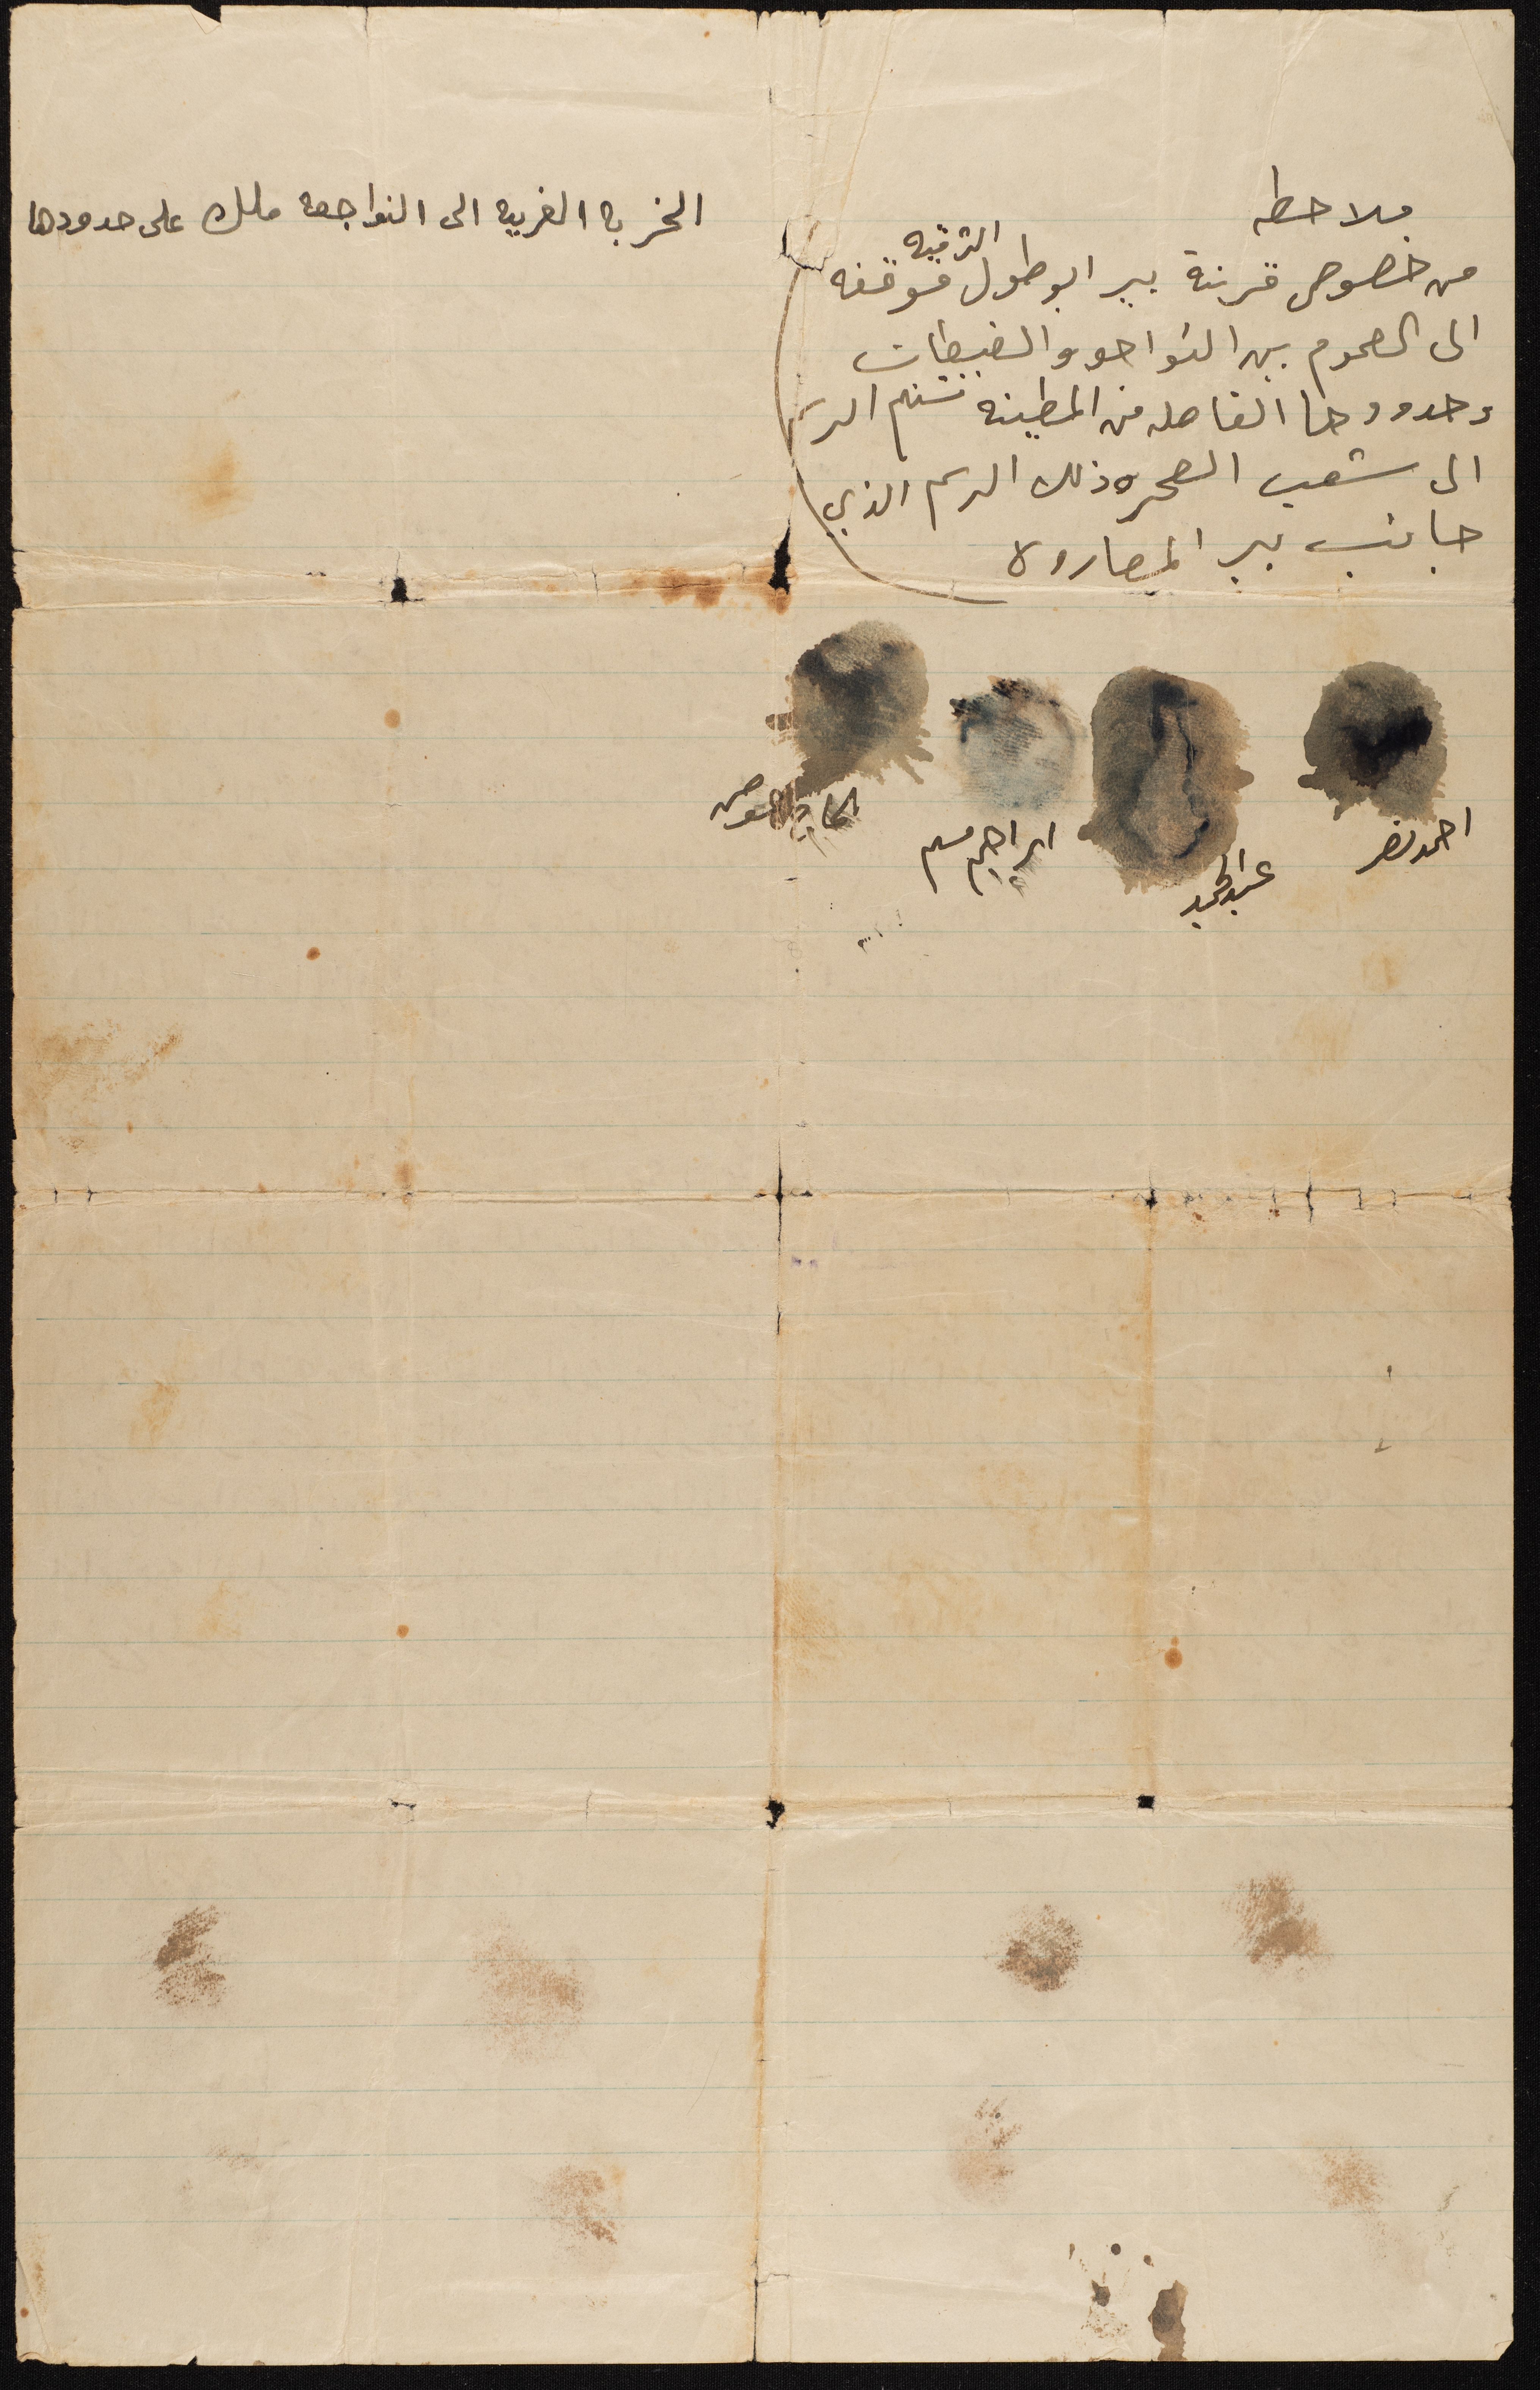 ملاحظه
من خصوص قرنة بير ابو طول الشرقيه موقفه
الى العموم بين النواجعه والضبيطات
وحدودها الفاصله من المطينه تسنم الرسم
الى شعب الصحره وذلك الرسم الذي
جانب بير المصاروه
الخربه الغربيه الى النواجعه ملك على حدودها
احمد نصر
عبد الحميد
ابراهيم مسلم